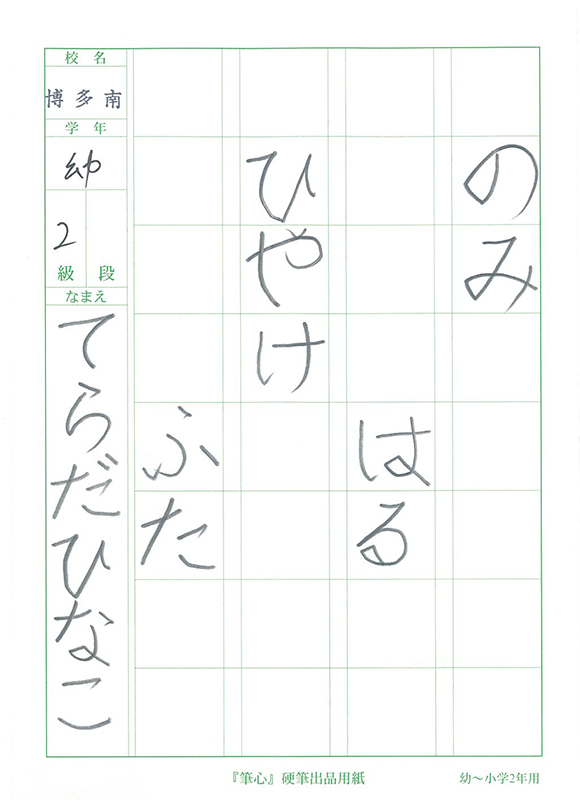 のみ
はる
ひやけ
ふた
校名
博多南
学年
幼
2
級 段
なまえ
てらだひなこ
『筆心』硬筆出品用紙
幼～小学2年用